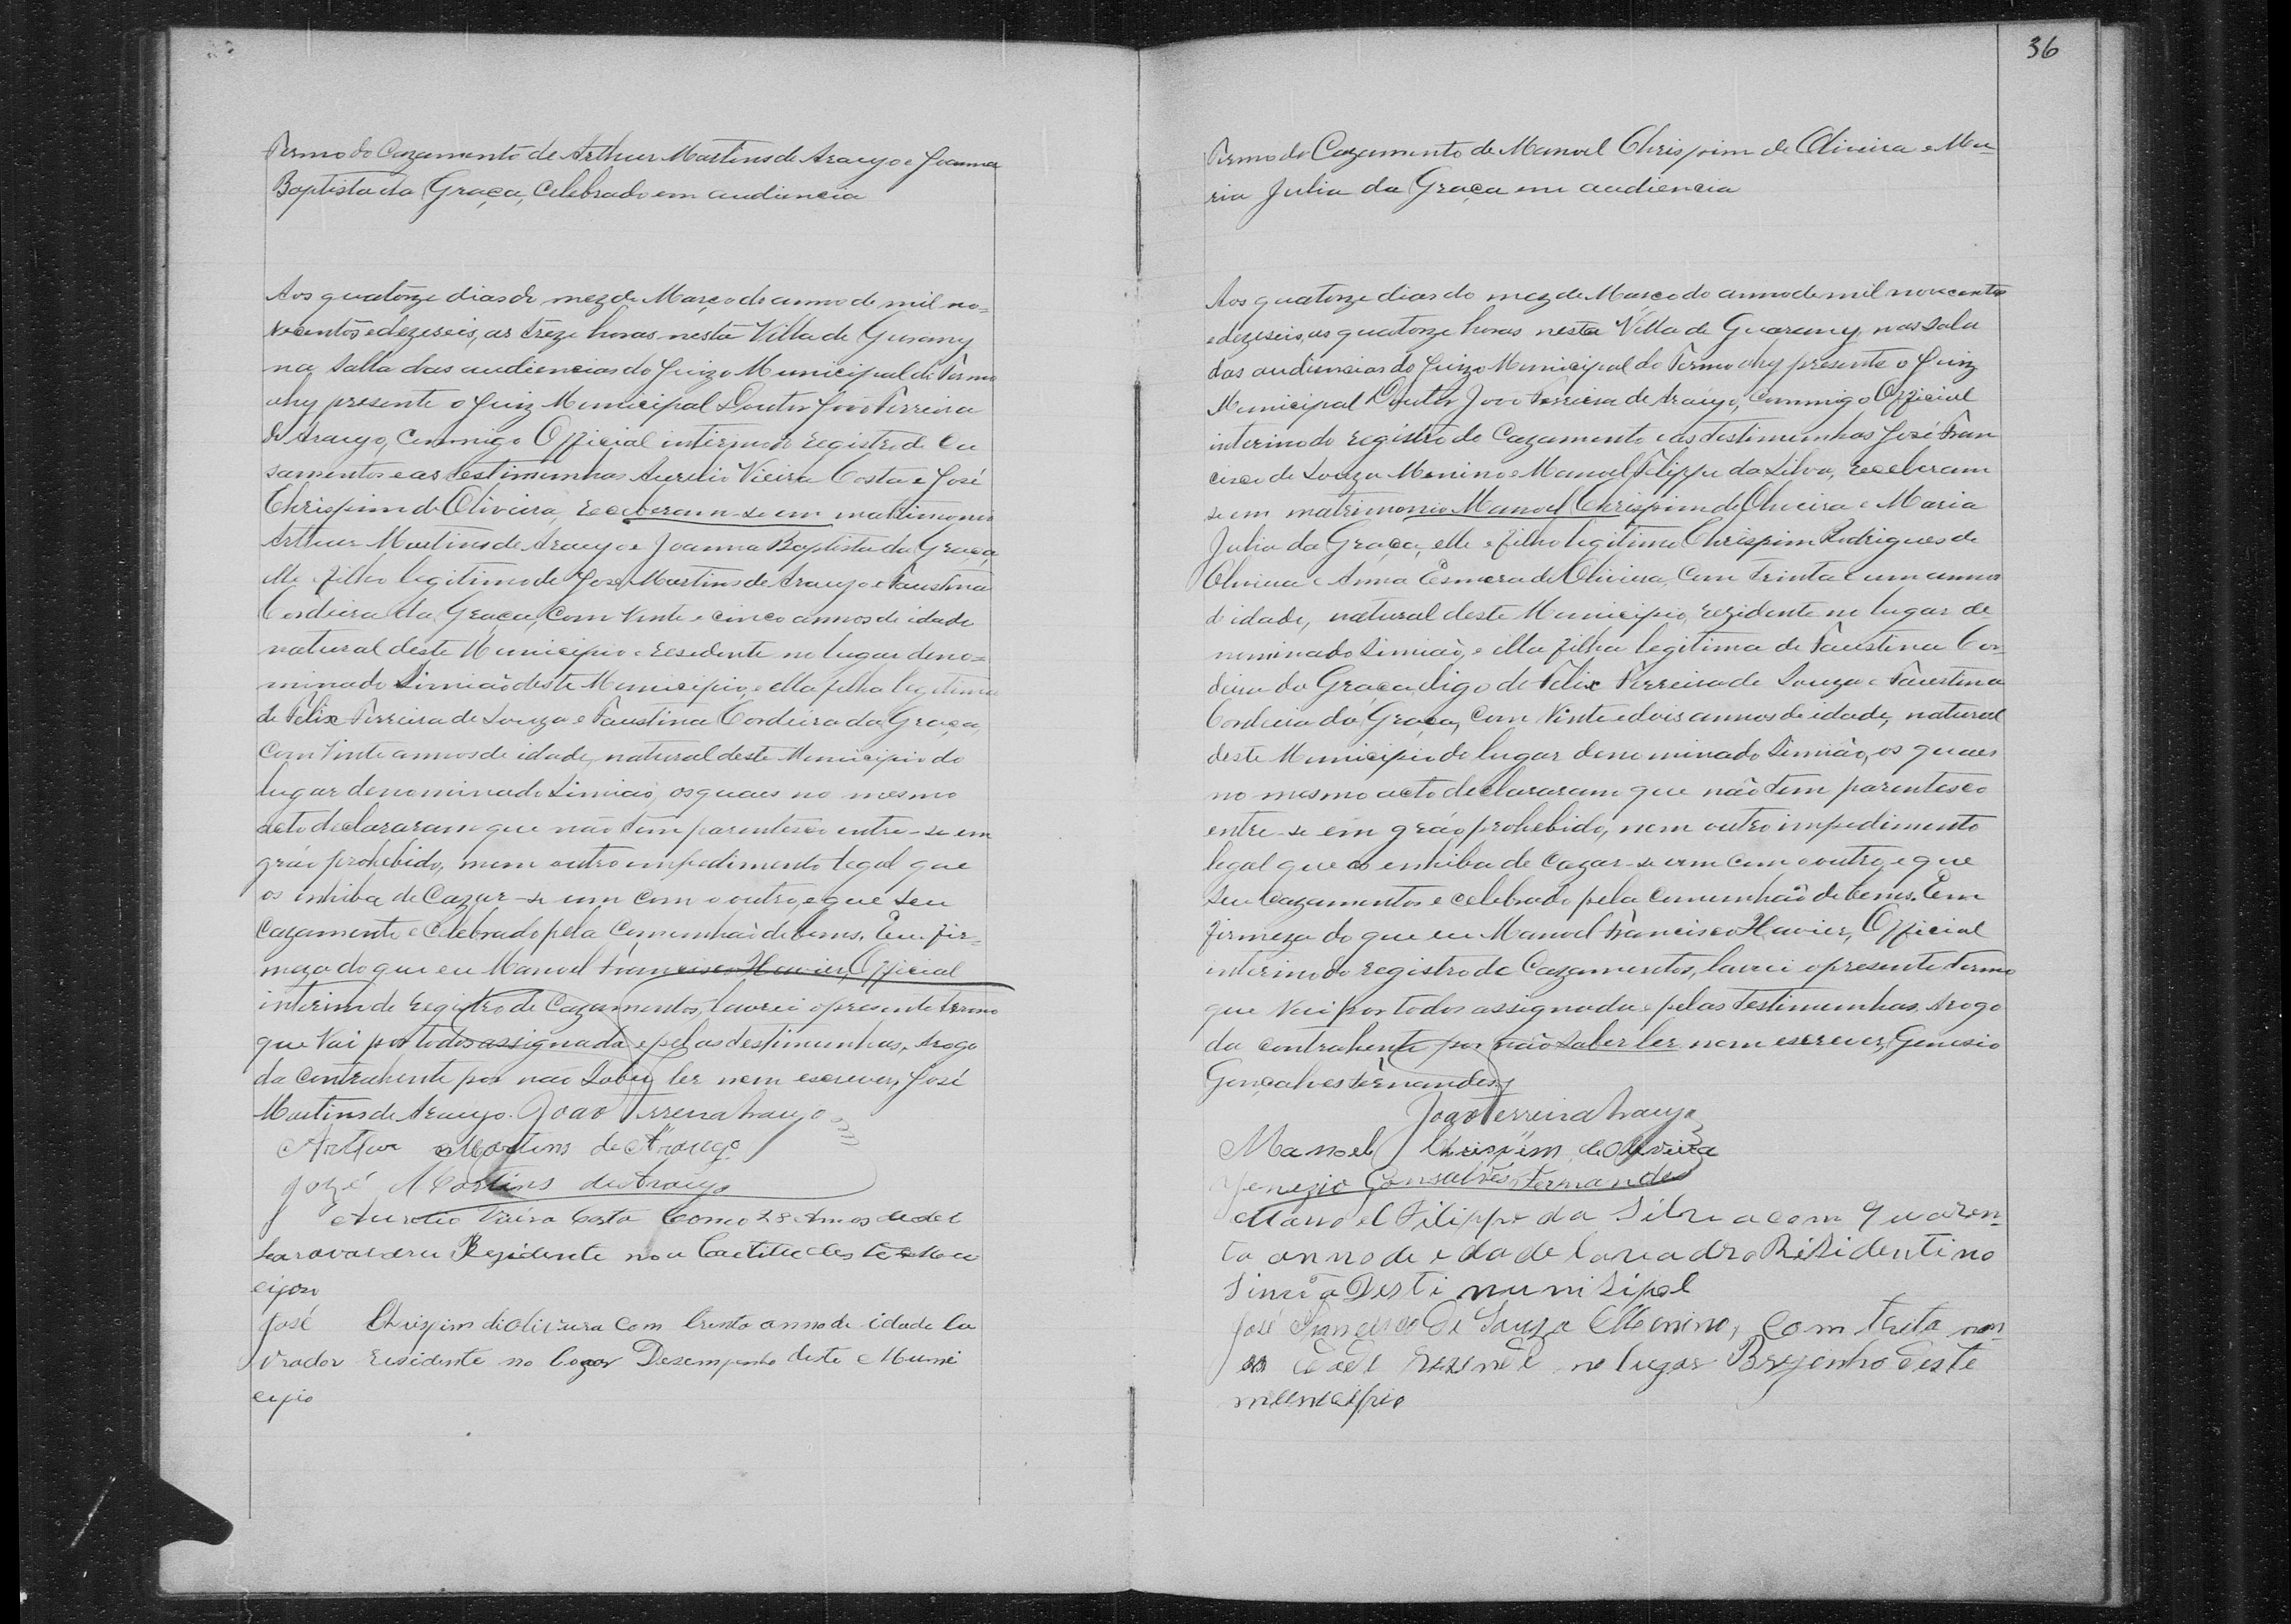 Termo do Cazamento de Arthur Martins de Araujo e Joanna
Baptista da Graça, Celebrado em audiencia
Aos quatorze dias do mez de Março do anno de mil no=
vecentos e dezeseis, as treze horas nesta Villa de Gurany
na Salla das audiencias do Juizo Municipal do Termo
ahy presente o Juiz Municipal Doutor João Ferreira
de Araujo, Commigo Official interino do registro de Ca
samentos e as testimunhas Aurelio Vieira Costa e José
Chrispim de Oliveira, receberam-se em matrimonio
Arthur Martins de Araujo e Joanna Baptista da Graça
elle e filho legitimo de José Martins de Araujo e Faustina
Cordeira da Graça, Com Vinte e cinco annos de idade
natural deste Municipio e residente no lugar deno=
minado Simião deste Municipio, e ella filha legitima
de Felix Ferreira de Souza e Faustina Cordeira da Graça,
Com Vinte annos de idade, natural deste Municipio do
lugar denominado Simião, os quaes no mesmo
acto declararam que não tem parentesco entre-se em
gráo prohebido, nem outro impedimento legal que
os inhiba de Cazar-se um com o outro, e que seu
Cazamento e Celebrado pela Comunhão de bems. Em fir=
meza do que eu Manoel Francisco Xavier, Official
interino de registro de Cazamentos, lavrei o presente termo
que Vai por todos assignado e pelas testimunhas. Arogo
da Contrahente por não Saber ler nem escrever, José
Martins de Araujo. João Ferreira Araujo
Arthur Martins de Araujo
José Martins de Araujo
Aurelio Vieira Costa Como 28 Annos de
Residente no
José Chrispim di Olivura Com trinta anno de idade la
vrador residente no logar Desempenho deste Muni
cipio
36
Termo do Cazamento de Manoel Chrispim de Oliveira e Ma=
ria Julia da Graça em audiencia
Aos quatorze dias do mez de Março do anno de mil novecentos
e dezeseis, as quatorze horas nesta Villa de Guarany, nas Sala
das audiencias do Juizo Municipal do Termo ahy presente o Juiz
Municipal Doutor João Ferreira de Araujo, Commigo Official
interino do registro do Cazamento e as testimunhas José Fran
cisco de Souza Menino e Manoel Filippe da Silva, receberam
se em matrimonio Manoel Chrispim de Oliveira e Maria
Julia da Graça, elle e filho legitimo Chrispim Rodrigues de
Oliveira e Anna de Oliveira, Com trinta e um annos
de idade, natural deste Municipio, rezidente no lugar de
nominado Simião, e ella filha legitima de Faustina Cor
deira da Graça digo de Felix Ferreira de Souza e Faustina
Cordeira da Graça, Com Vinte e dois annos de idade, natural
deste Municipio do lugar denominado Simião, os quaes
no mesmo acto declararam que não tem parentesco
entre-se em gráo prohebido, nem outro impedimento
legal que os enhiba de Cazar-se um com o outro, e que
Seu Cazamento e celebrado pela Comunhaõ de bems. Em
firmeza do que eu Manoel Francisco Xavier, Official
interino do registro de Cazamentos, lavrei o presente termo
que Vai por todos assignado e pelas testimunhas. Arogo
da contrahente por não Saber ler nem escrever, Genesio
Gonçalves Fernandes
João Ferreira Araujo
Manoel Chrispim de Oliveira
Genezio Gonsalves Fernandes
Manoel Filippe da Silva com quaren
ta anno de edade lavradro Risidenti no
Simiã Desti munisipal
José Francisco de Souza Menino, com
no lugar Brejenho deste
municipio